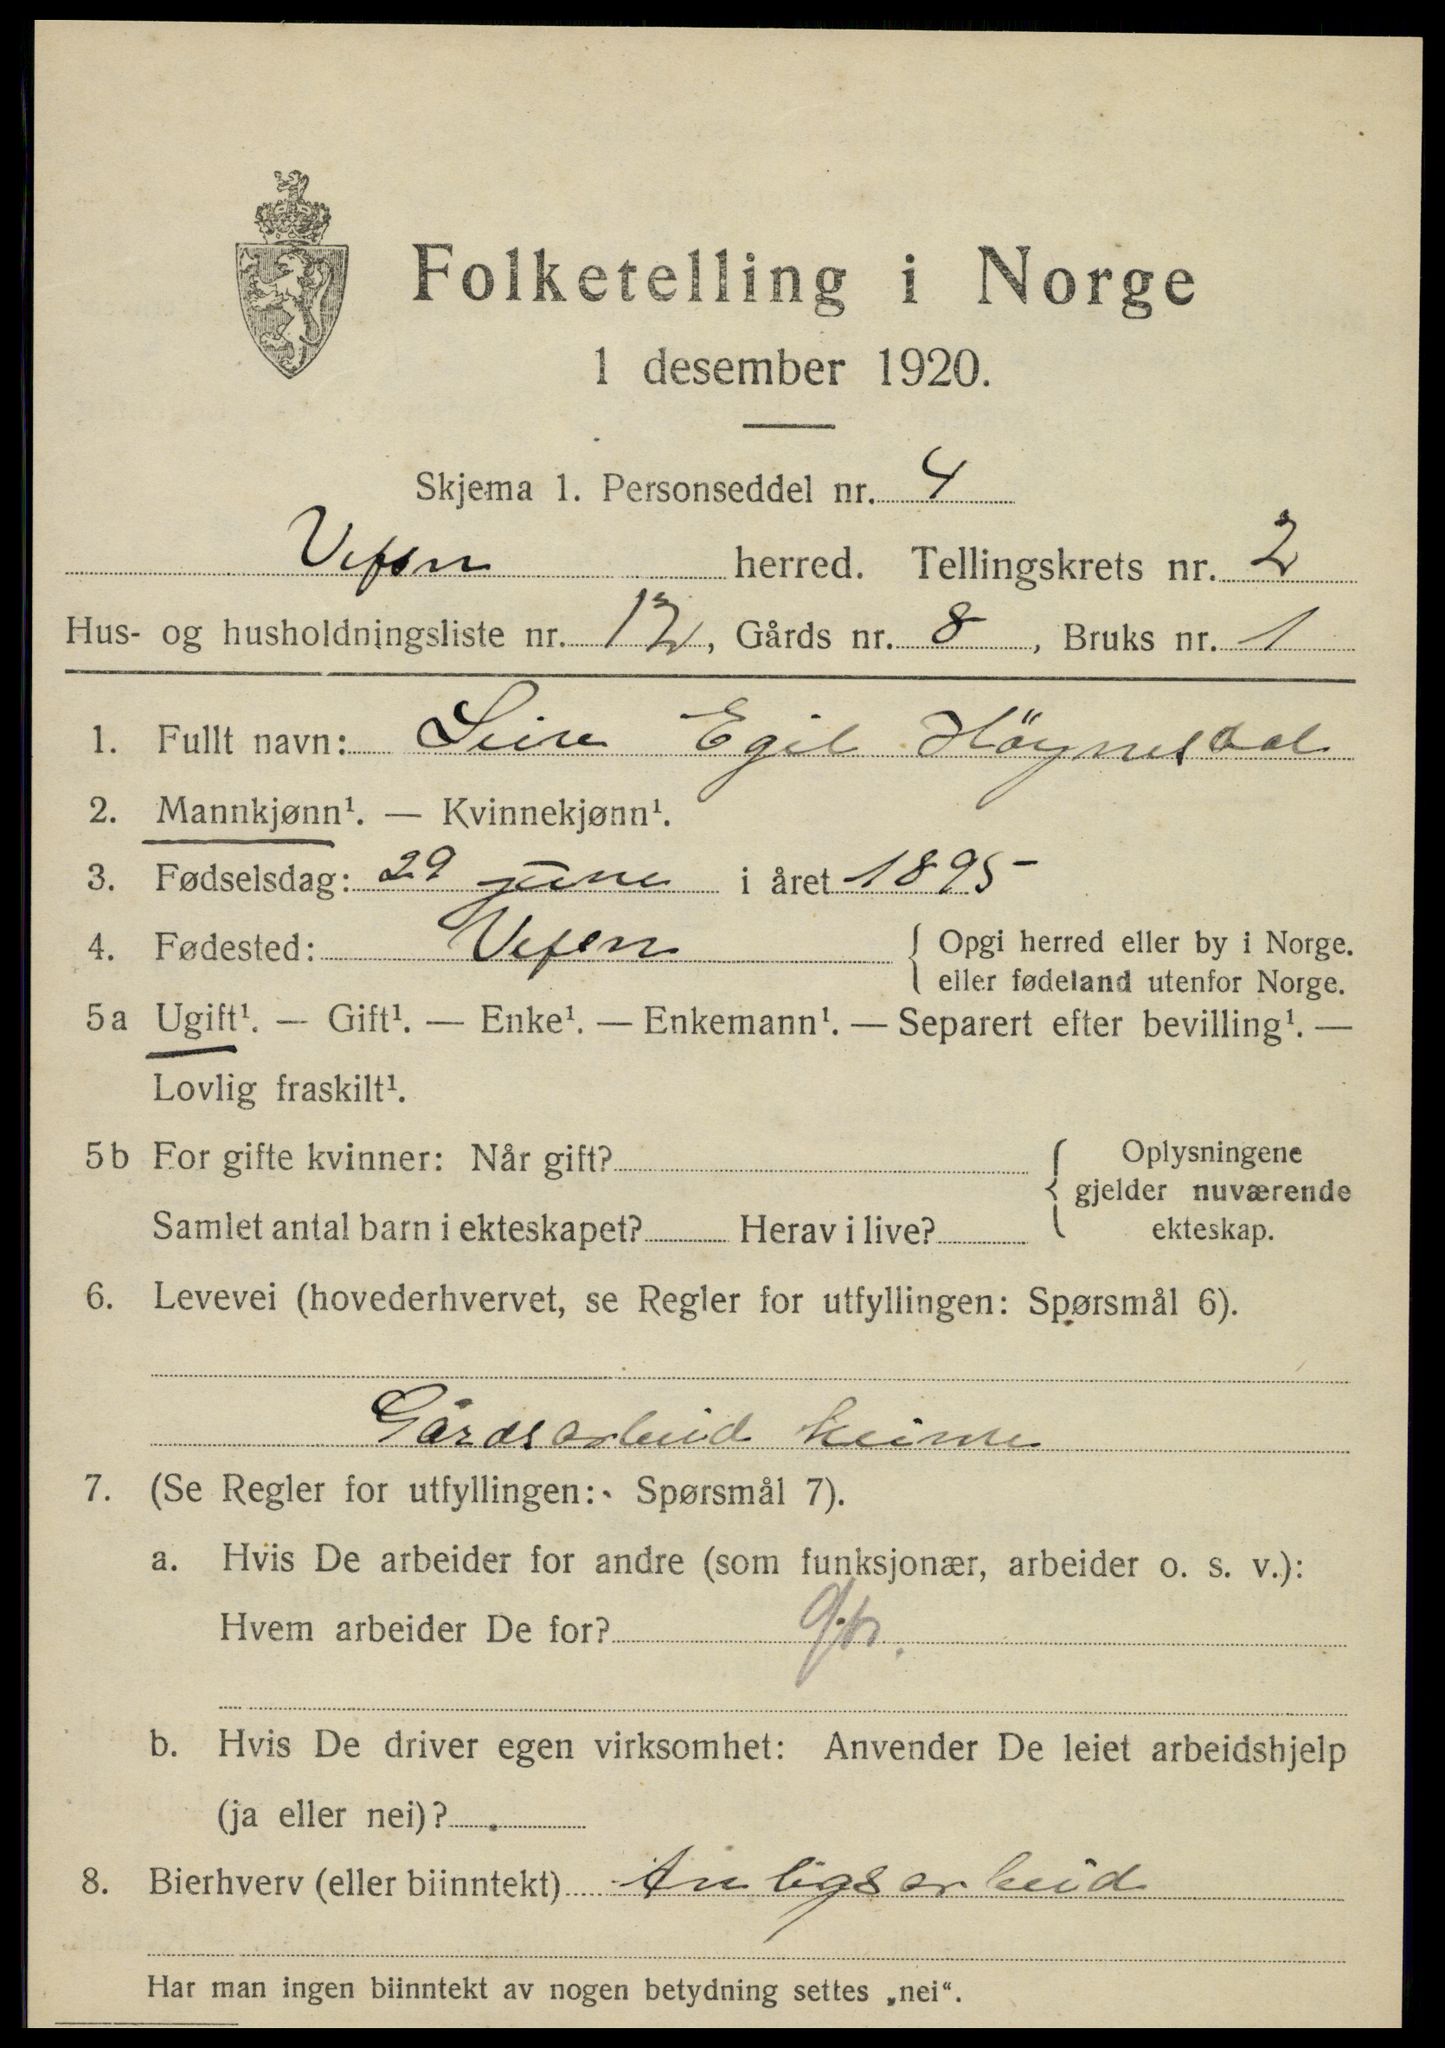 Folketelling i Norge
1 desember 1920.
Skjema 1. Personseddel nr. 4
Vefsn herred. Tellingskrets nr. 2
Hus- og husholdningsliste nr. 12, Gårds nr. 8, Bruks nr. 1
1. Fullt navn: Egil Höynesdal
2. Mannkjønn¹. — Kvinnekjønn¹.
3. Fødselsdag: 29 june i året 1895
4. Fødested: Vefsn { Opgi herred eller by i Norge.
eller fødeland utenfor Norge.
5a Ugift¹. — Gift¹. — Enke¹. — Enkemann¹. — Separert efter bevilling¹. —
Lovlig fraskilt¹.
5b For gifte kvinner: Når gift? { Oplysningene
gjelder nuværende
Samlet antal barn i ekteskapet? Herav i live? ekteskap.
6. Levevei (hovederhvervet, se Regler for utfyllingen: Spørsmål 6).
Gårdsarbeid heime
7. (Se Regler for utfyllingen: Spørsmål 7).
a. Hvis De arbeider for andre (som funksjonær, arbeider o. s. v.):
Hvem arbeider De for?
b. Hvis De driver egen virksomhet: Anvender De leiet arbeidshjelp
(ja eller nei)?
8. Bierhverv (eller biinntekt) Anligsarbeid
Har man ingen biinntekt av nogen betydning settes „nei“.